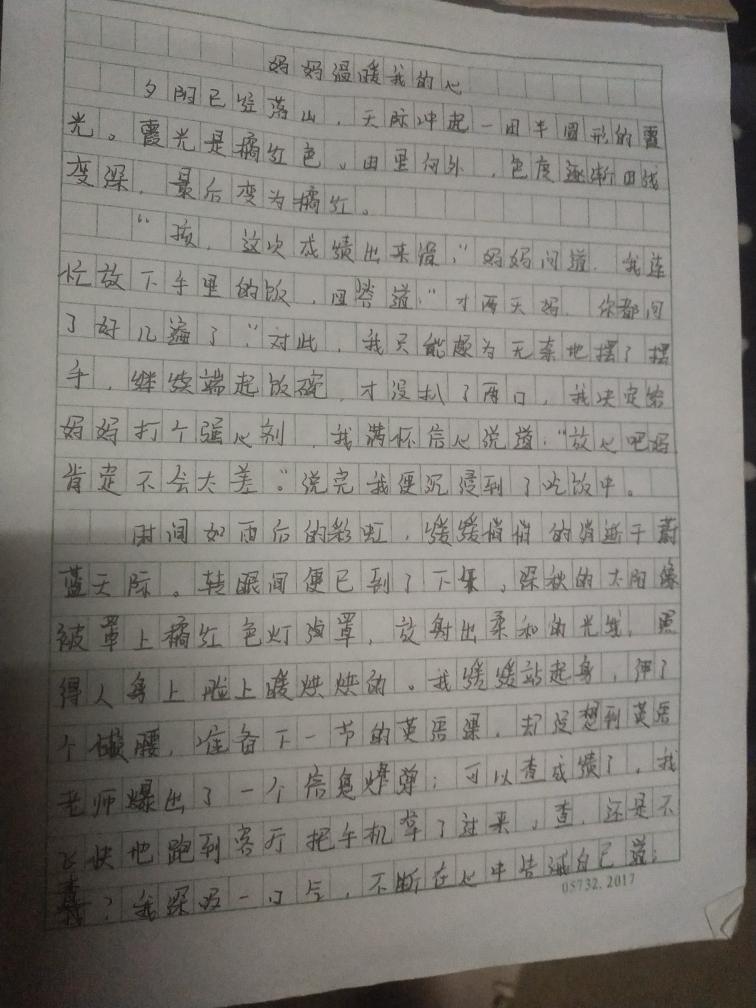 妈妈温暖我的心
夕阳已经落山，天际冲起一由半圆形的霞
光。霞光是橘红色，由里向外，色度逐渐由浅
变深，最后变为橘红。
“孩，这次成绩出来没，”妈妈问道，我连
忙放下手里的饭，回答道：“才两天妈，你都问
了好几遍了”，对此，我只能颇为无奈地摆了摆
手，继续端起饭碗，才没扒了两口，我决定给
妈妈打个强心剂，我满怀信心说道：“放心吧妈
肯定不会太差。”说完我便沉浸到了吃饭中。
时间如雨后的彩虹，缓缓悄悄的消逝于蔚
蓝天际。转眼间便已到了下午，深秋的太阳像
被罩上橘红色灯罩，放射出柔和的光线，照
得人身上脸上暖烘烘的。我缓缓站起身，伸了
个懒腰，准备下一节的英语课，却没想到英语
老师爆出了一个信息炸弹；可以查成绩了，我
飞快地跑到客厅把手机拿了过来，查，还是不
查？我深吸一口气，不断在心中告诫自己道：
05732.2017